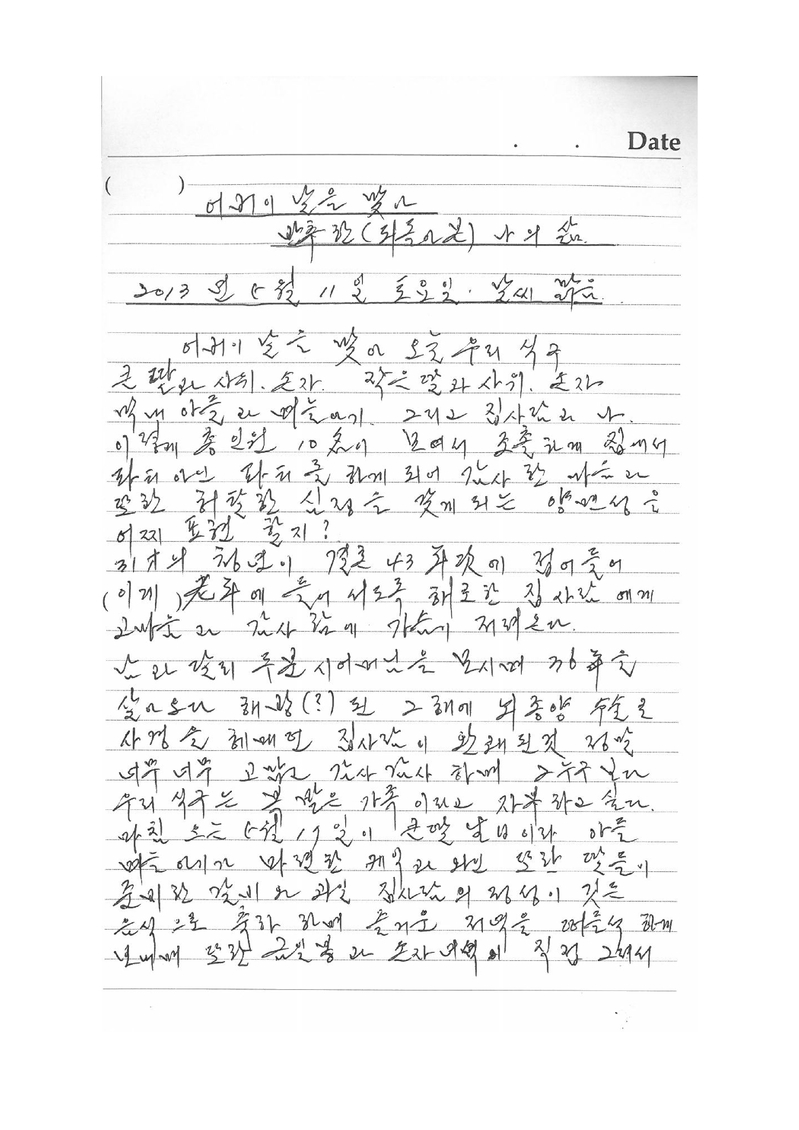 Date
( )
어버이 날을 맞아
반추한(되돌아본) 나의 삶.
2013년 5월 11일 토요일. 날씨 맑음.
어버이 날을 맞아 오늘 우리 식구
큰 딸과 사위. 손자. 작은 딸과 사위. 손자
막내 아들과 며늘아기. 그리고 집사람과 나.
이렇게 총인원 10名이 모여서 조촐하게 집에서
파티아닌 파티를 하게 되어 감사한 마음과
또한 허탈한 심정을 갖게 되는 양면성을
어찌 표현 할지?
31才의 청년이 결혼 43年次에 접어들어
(이제) 老年에 들어 서도록 해로한 집사람에게
고마움과 감사함에 가슴이 저려온다.
남과 달리 두분 시어머님을 모시며 36年을
살아오다 해방(?)된 그 해에 뇌종양 수술로
사경을 헤매던 집사람이 완쾌된것 정말
너무너무 고맙고 감사감사 하며 누구보다
우리 식구는 복 많은 가족이라고 자부하고 싶다.
마침 오는 5월 17일이 큰딸 날이라 아들
며늘아기가 마련한 케익과 와인 또한 딸들이
준비한 갈비와 과일 집사람의 정성이 깃든
음식으로 축하하며 즐거운 저녁을 떠들석하게
보내며 또한 금일봉과 손자녀석이 직접 그려서